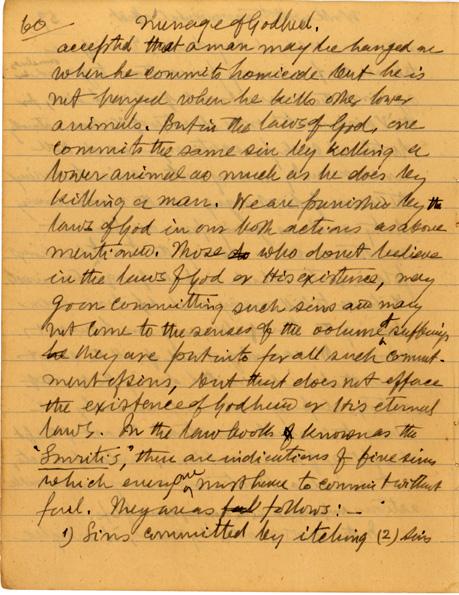 60 Message of Godhead.
accepted that a man may be hanged or
when he commits homicide but he is
not hanged when he kills other lower
animals. But in the laws of God, one
commits the same sin by killing a
lower animal as much as he does by
killing a man. We are punished by the
laws of God in our both actions as above
mentioned. Those who do not believe
in the laws of God or His existence, may
go on committing such sins and may
not come to the senses of the volume of sufferings
they are put into for all such commit-
ment of sins, but that does not efface
the existence of Godhead or His eternal
laws. In the law books known as the
"Smritis", there are indications of five sins
which every one must have to commit without
fail. They are as follows:—
1) Sins committed by itching (2) sins